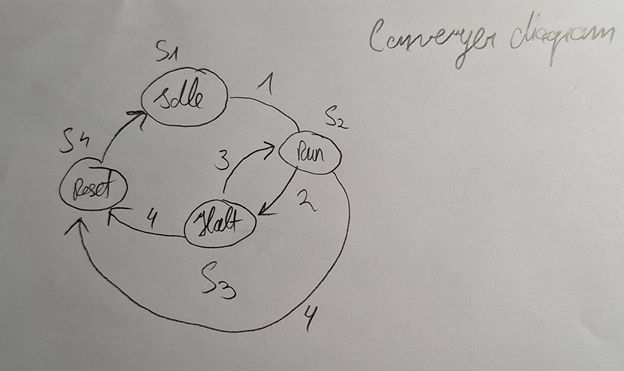 Conveyer diagram
S1
Idle
1
S2
Run
S4
Reset
3
2
4
Halt
S3
4